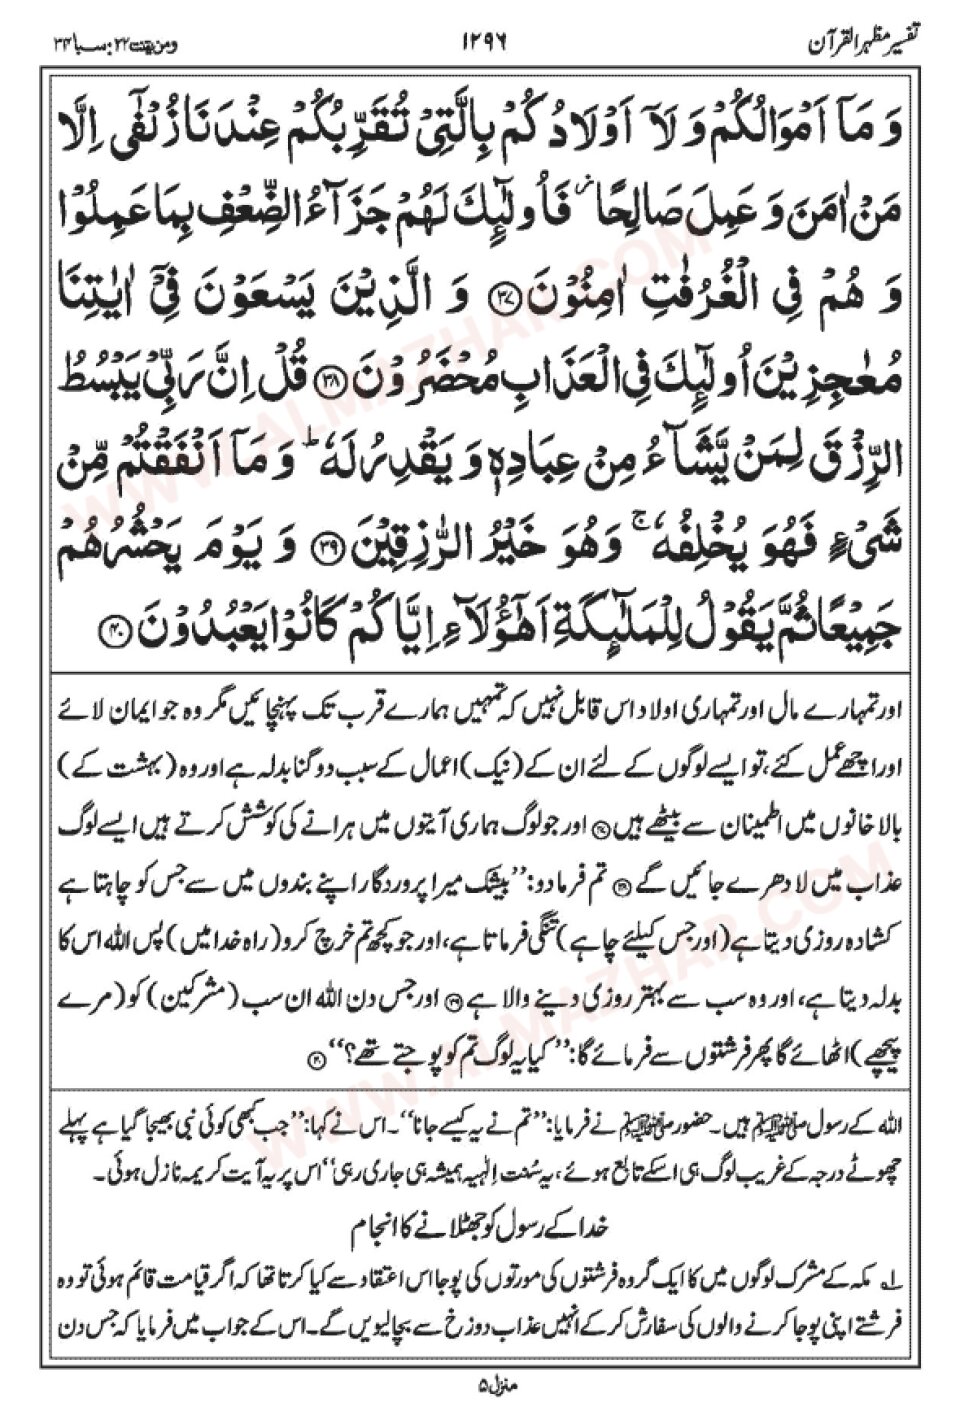 تفسیر مظہر القرآن ۱۲۹۶ ومن یقنت ۲۲: سبا ۳۴
وَمَآ اَمْوَالُكُمْ وَلَآ اَوْلَادُكُمْ بِالَّتِیْ تُقَرِّبُكُمْ عِنْدَنَا زُلْفٰۤی اِلَّا
مَنْ اٰمَنَ وَعَمِلَ صَالِحًا ۫ فَاُولٰٓئِكَ لَهُمْ جَزَآءُ الضِّعْفِ بِمَا عَمِلُوْا
وَهُمْ فِی الْغُرُفٰتِ اٰمِنُوْنَ ۝۳۷ وَالَّذِیْنَ یَسْعَوْنَ فِیْۤ اٰیٰتِنَا
مُعٰجِزِیْنَ اُولٰٓئِكَ فِی الْعَذَابِ مُحْضَرُوْنَ ۝۳۸ قُلْ اِنَّ رَبِّیْ یَبْسُطُ
الرِّزْقَ لِمَنْ یَّشَآءُ مِنْ عِبَادِهٖ وَیَقْدِرُ لَهٗ ؕ وَمَآ اَنْفَقْتُمْ مِّنْ
شَیْءٍ فَهُوَ یُخْلِفُهٗ ۚ وَهُوَ خَیْرُ الرّٰزِقِیْنَ ۝۳۹ وَیَوْمَ یَحْشُرُهُمْ
جَمِیْعًا ثُمَّ یَقُوْلُ لِلْمَلٰٓئِكَةِ اَهٰۤؤُلَآءِ اِیَّاكُمْ كَانُوْا یَعْبُدُوْنَ ۝۴۰
اور تمہارے مال اور تمہاری اولاد اس قابل نہیں کہ تمہیں ہمارے قرب تک پہنچائیں مگر وہ جو ایمان لائے
اور اچھے عمل کئے، تو ایسے لوگوں کے لئے ان کے (نیک) اعمال کے سبب دو گنا بدلہ ہے اور وہ (بہشت کے)
بالا خانوں میں اطمینان سے بیٹھے ہیں ۝۳۷ اور جو لوگ ہماری آیتوں میں ہرانے کی کوشش کرتے ہیں ایسے لوگ
عذاب میں لا دھرے جائیں گے ۝۳۸ تم فرما دو: ’’بیشک میرا پروردگار اپنے بندوں میں سے جس کو چاہتا ہے
کشادہ روزی دیتا ہے (اور جس کیلئے چاہے) تنگی فرماتا ہے، اور جو کچھ تم خرچ کرو (راہ خدا میں) پس اللہ اس کا
بدلہ دیتا ہے، اور وہ سب سے بہتر روزی دینے والا ہے ۝۳۹ اور جس دن اللہ ان سب (مشرکین) کو (مرے
پیچھے) اٹھائے گا پھر فرشتوں سے فرمائے گا: ’’کیا یہ لوگ تم کو پوجتے تھے؟‘‘ ۝۴۰
اللہ کے رسول ﷺ ہیں۔ حضور ﷺ نے فرمایا: ’’تم نے یہ کیسے جانا‘‘۔ اس نے کہا: ’’جب کبھی کوئی نبی بھیجا گیا ہے پہلے
چھوٹے درجہ کے غریب لوگ ہی اسکے تابع ہوئے، یہ سُنت الٰہیہ ہمیشہ ہی جاری رہی‘‘ اس پر یہ آیت کریمہ نازل ہوئی۔
خدا کے رسول کو جھٹلانے کا انجام
۱ مکہ کے مشرک لوگوں میں کا ایک گروہ فرشتوں کی مورتوں کی پوجا اس اعتقاد سے کیا کرتا تھا کہ اگر قیامت قائم ہوئی تو وہ
فرشتے اپنی پوجا کرنے والوں کی سفارش کر کے انہیں عذاب دوزخ سے بچا لیویں گے۔ اس کے جواب میں فرمایا کہ جس دن
منزل ۵
WWW.ALMAZHAR.COM
WWW.ALMAZHAR.COM